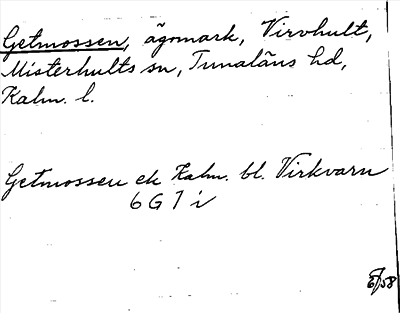 Getmossen, ägomark, Virvhult,
Misterhults sn, Tunaläns hd,
Kalm. l.
Getmossen ek Kalm. bl. Virkvarn
6 G 7 i